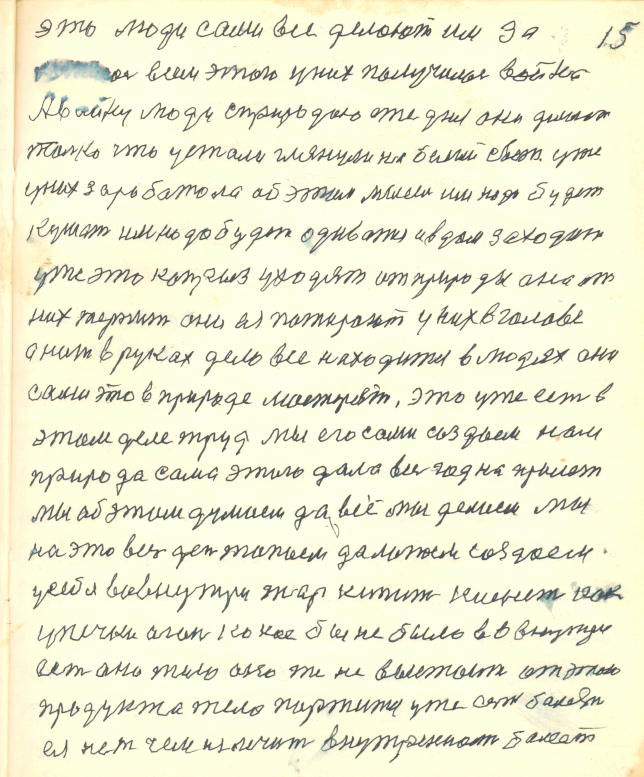 это люди сами все делоют им За 15
всем этого у них получилос война
А войну люди с природаю оже дня они делают
толко что устали глянули на белый свет уже
у них заработола об этом мысли им надо будет
кушат им надо будет одиватся и в дом заходит
уже это которыз уходят от природы она от
них теряит они ея потирают у них в голове
а нит в руках дело все находится в людях они
сами это в природе мастерят, это уже ест в
этом деле труд мы его сами создаем нам
природа сама этого дала все год на прилет
мы об этом думаем да всё мы делаем мы
на это вез ден топаем да ложем создаем
у себя вовнутри жар кипит как
у печьки огон кокое бы не было вовнутри
ест оно тело оно же не от этого
продукта тело портится уже ест болезн
ея нет чем излечит внутренност болеет